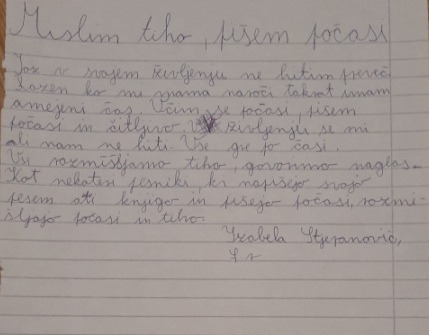 Mislim tiho, pišem počasi
Jaz v svojem življenju ne hitim preveč
razen ko mi mama naroči takrat imam
omejeni čas. Učim se počasi, pišem
počasi in čitljivo. V življenju se mi
ali nam ne hiti. Vse gre po časi.
Vsi razmišljamo tiho, govorimo naglas.
Kot nekateri pesniki, ki napišejo svojo
pesem ali knjigo in pišejo počasi, razmi-
šljajo počasi in tiho.
Izabela Stjepanovič,